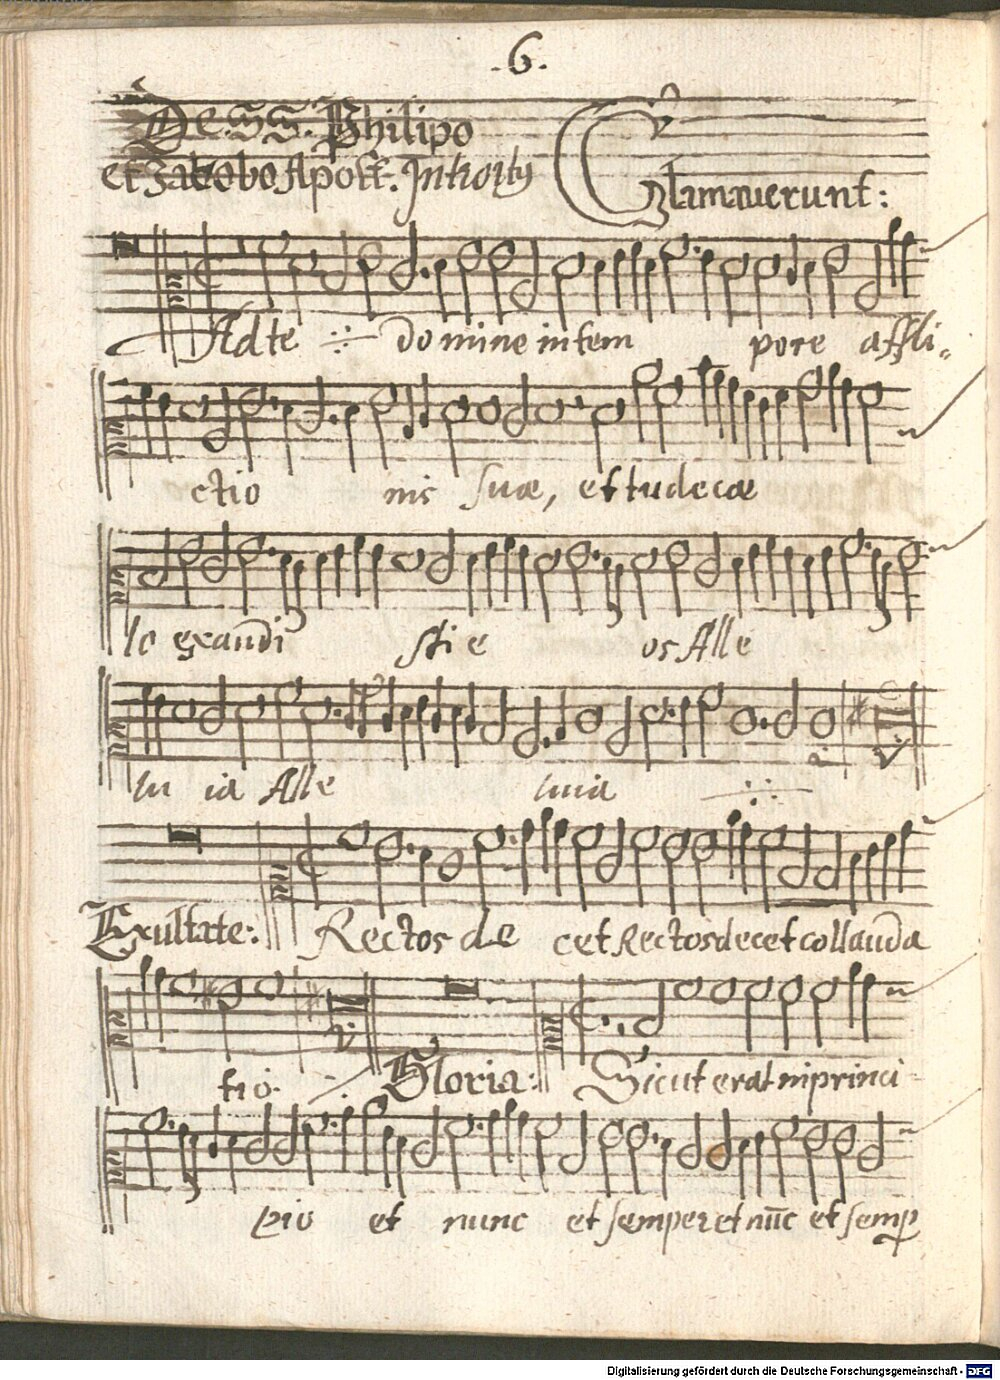 .6.
De. SS. Philipo
et Jacobo Apost. Introitus
Clamaverunt:
Ad te ·//· domine in tem pore affli„
ctio nis suæ, et tu de cæ
lo exaudi sti e os Alle
lu ia Alle luia ·//·
Exultate: Rectos de cet Rectos decet collauda
tio. ·//· Gloria: Sicut erat in princi-
pio et nunc et semper et nūc et semp
Digitalisierung gefördert durch die Deutsche Forschungsgemeinschaft - DFG